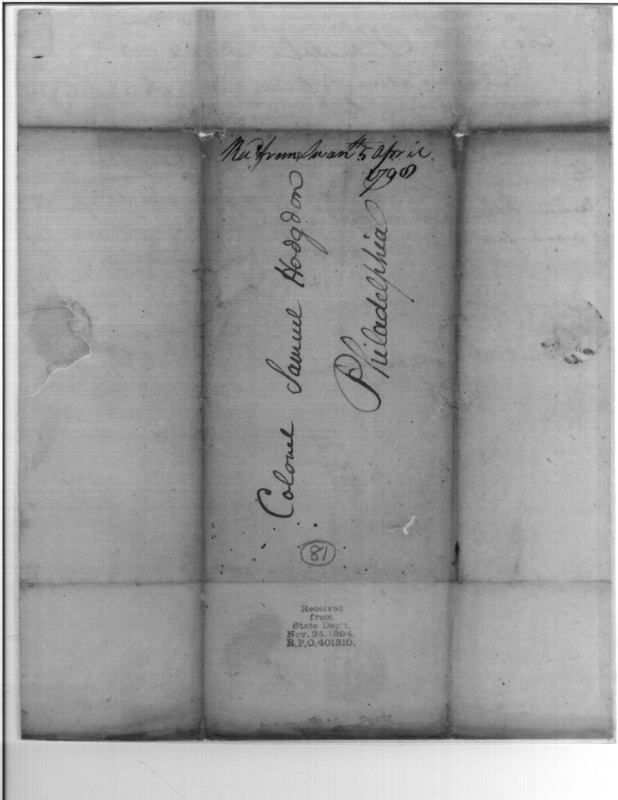 from Swan 5th April
1798
Colonel Samuel Hodgdon
Philadelphia
81
Received
from
State Dep't.
Nov. 24, 1894.
R.P.O. 401310.